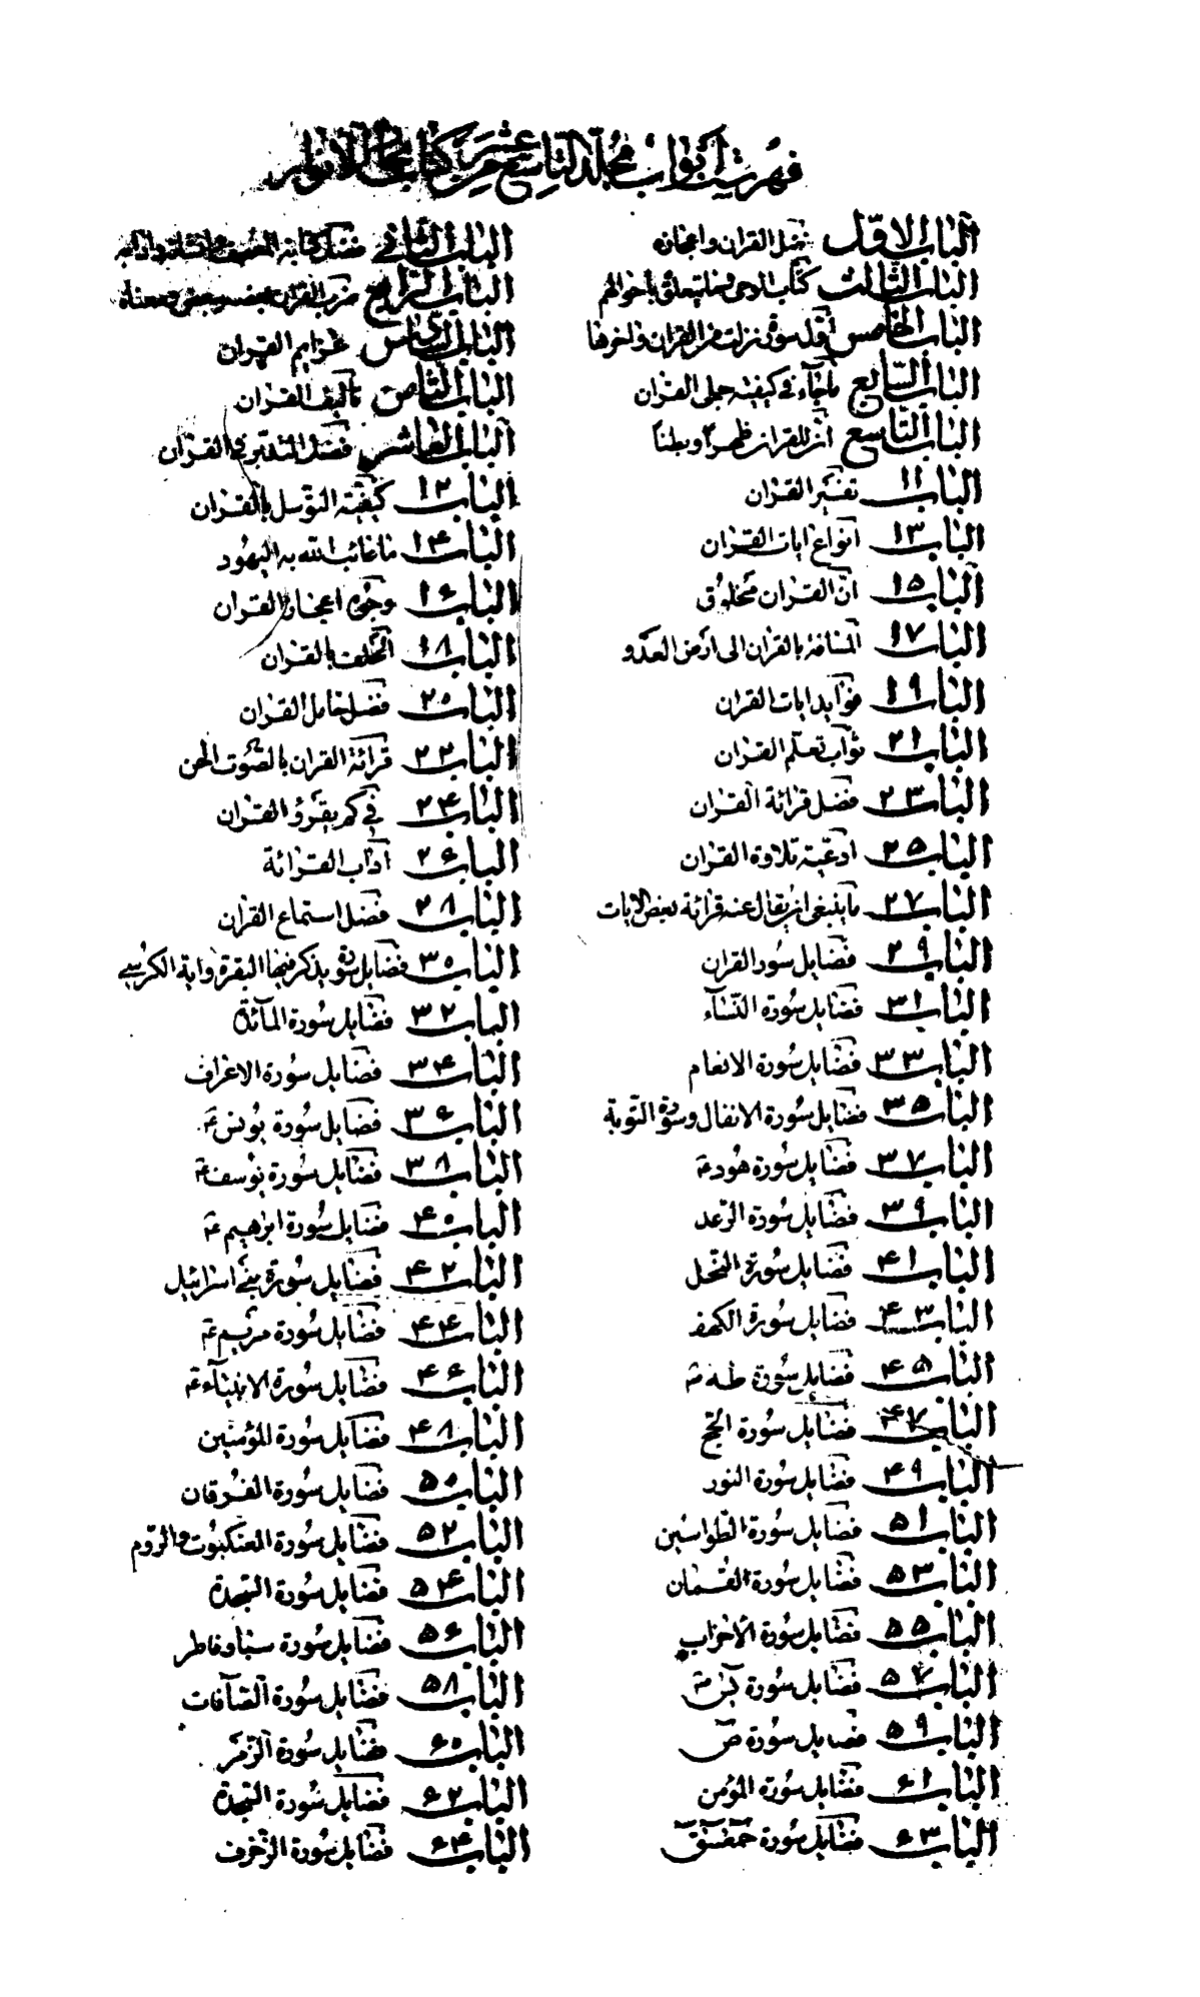 فهرست ابواب مجلد التاسع عشر من كتاب بحار الانوار
الباب الاول فضل القران واعجازه
الباب الثاني فضل كتابة المصحف وانشائه وادابه
الباب الثالث كتاب الوحى وما يتعلق باحوالهم
الباب الرابع ضرب القران بعضه ببعض ومعناه
الباب الخامس اول سورة نزلت من القران واخرها
الباب السادس عزايم القران
الباب السابع ماجاء في كيفية جمع القران
الباب الثامن تاليف القران
الباب التاسع ان للقران ظهرا وبطنا
الباب العاشر فضل التدبر في القران
الباب ١١ تفسير القران
الباب ١٢ كيفية التوسل بالقران
الباب ١٣ انواع ايات القران
الباب ١۴ ما عاتب الله به اليهود
الباب ١۵ ان القران مخلوق
الباب ١۶ وجوه اعجاز القران
الباب ١٧ المسافة بالقران الى ارض العدو
الباب ١٨ الحلف بالقران
الباب ١٩ فوايد ايات القران
الباب ٢٠ فضل حامل القران
الباب ٢١ ثواب تعلم القران
الباب ٢٢ قرائة القران بالصوت الحسن
الباب ٢٣ فضل قرائة القران
الباب ٢۴ في كم يقرؤ القران
الباب ٢۵ ادعية تلاوة القران
الباب ٢۶ آداب القرائة
الباب ٢٧ ما ينبغى ان يقال عند قرائة بعض الايات
الباب ٢٨ فضل استماع القران
الباب ٢٩ فضايل سور القران
الباب ٣٠ فضايل سورة يذكر فيها البقرة واية الكرسى
الباب ٣١ فضايل سورة النساء
الباب ٣٢ فضايل سورة المآئدة
الباب ٣٣ فضايل سورة الانعام
الباب ٣۴ فضايل سورة الاعراف
الباب ٣۵ فضايل سورة الانفال وسورة التوبة
الباب ٣۶ فضايل سورة يونس ع
الباب ٣٧ فضايل سورة هود ع
الباب ٣٨ فضايل سورة يوسف ع
الباب ٣٩ فضايل سورة الرعد
الباب ۴٠ فضايل سورة ابرهيم ع
الباب ۴١ فضايل سورة النحل
الباب ۴٢ فضايل سورة بني اسرائيل
الباب ۴٣ فضايل سورة الكهف
الباب ۴۴ فضايل سورة مريم ع
الباب ۴۵ فضايل سورة طه ع
الباب ۴۶ فضايل سورة الانبيآء ع
الباب ۴٧ فضايل سورة الحج
الباب ۴٨ فضايل سورة المؤمنين
الباب ۴٩ فضايل سورة النور
الباب ۵٠ فضايل سورة الفرقان
الباب ۵١ فضايل سورة الطواسين
الباب ۵٢ فضايل سورة العنكبوت والروم
الباب ۵٣ فضايل سورة القمان
الباب ۵۴ فضايل سورة السجدة
الباب ۵۵ فضايل سورة الأحزاب
الباب ۵۶ فضايل سورة سبأ وفاطر
الباب ۵٧ فضايل سورة يس ع
الباب ۵٨ فضايل سورة الصآفات
الباب ۵٩ فضايل سورة ص
الباب ۶٠ فضايل سورة الزمر
الباب ۶١ فضايل سورة المؤمن
الباب ۶٢ فضايل سورة السجدة
الباب ۶٣ فضايل سورة حمعسق
الباب ۶۴ فضايل سورة الزخرف